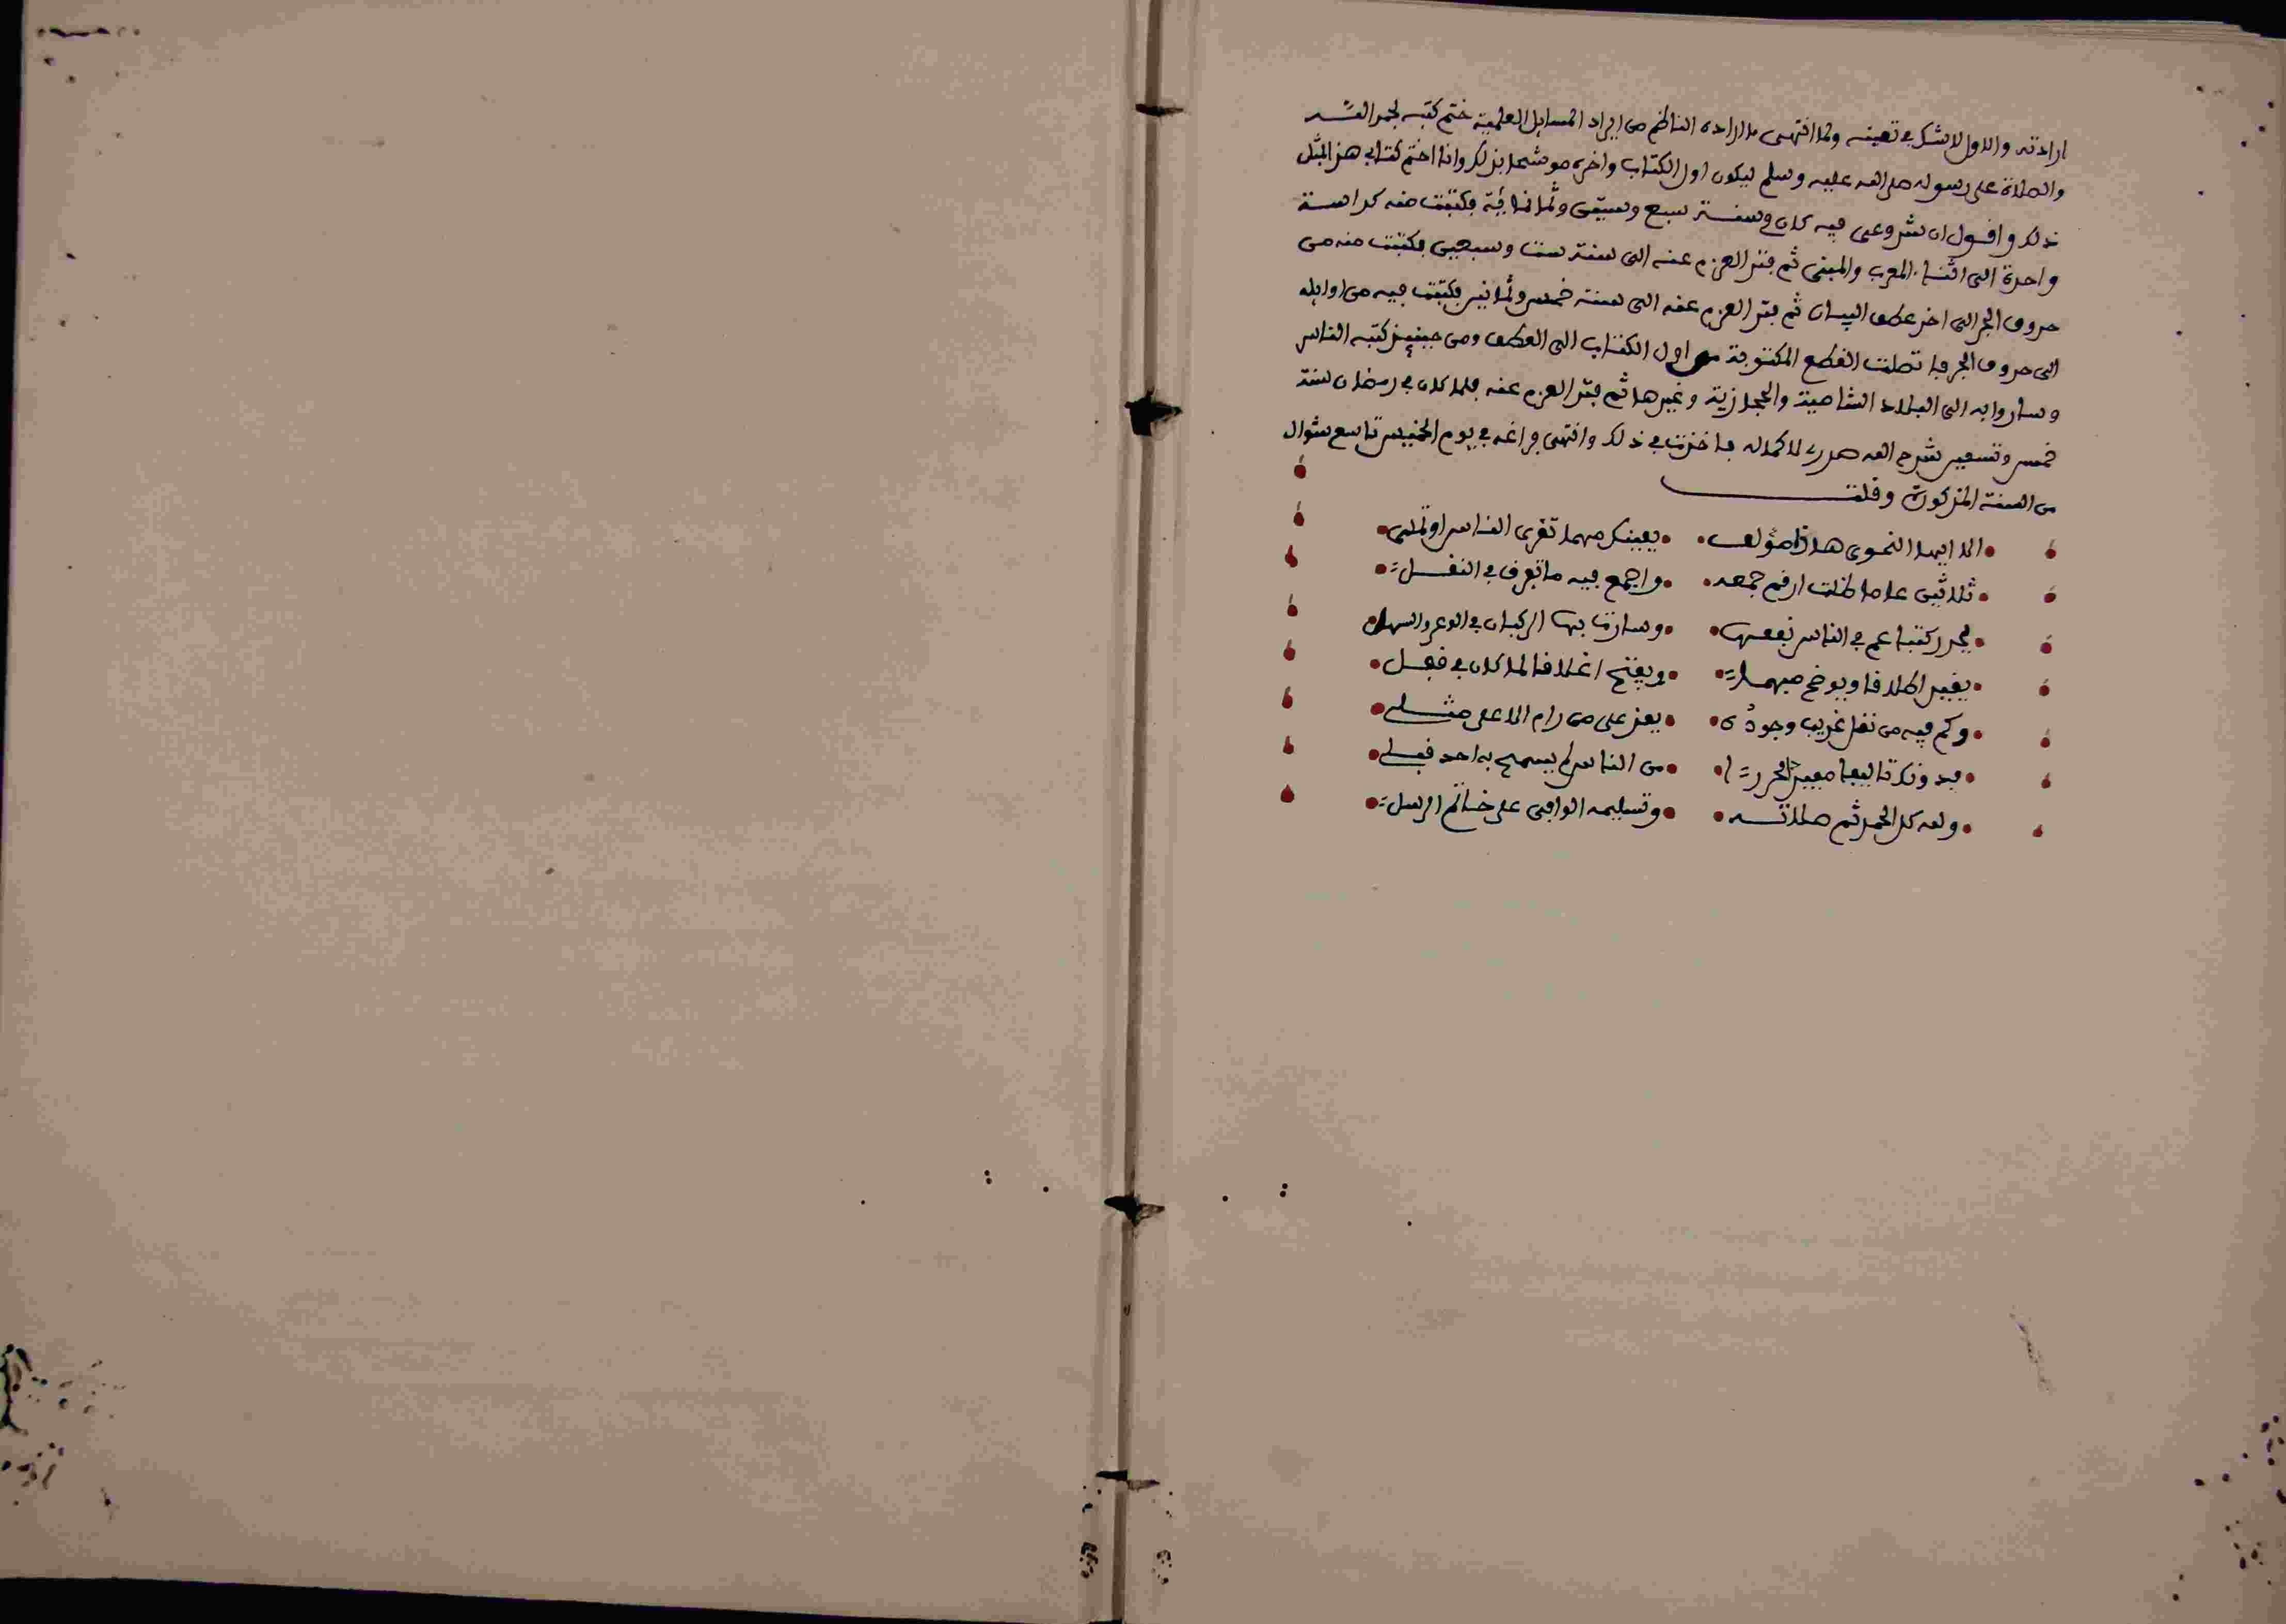 ارادته والاول لا شك في تعينه ولما انتهى ما اراده الناظم من ايراد المسايل العلمية ختم كتبه بحمد الله
والصلاة على رسوله صلى الله عليه وسلم ليكون اول الكتاب واخره موشحا بذلك وانا اختم كتابي هذا بمثل
ذلك واقول ان شروعي فيه كان في سنة سبع وستين وثمانمائة فكتبت منه كراسة
واحدة الى اثناء المعرب والمبني ثم فتر العزم عنه الى سنة ست وسبعين فكتبت منه من
حروف الجر الى اخر عطف البيان ثم فتر العزم عنه الى سنة خمس وثمانين فكتبت فيه من اوايله
الى حروف الجر فاتصلت القطع المكتوبة من اول الكتاب الى العطف ومن حينئذ كتبه الناس
وساروا به الى البلاد الشامية والحجازية وغيرها ثم فتر العزم عنه فلما كان في رمضان سنة
خمس وتسعين شرح الله صدري لاكماله فاخذت في ذلك وانتهى فراغه في يوم الخميس تاسع شوال
من السنة المذكورة وقلت
الا ايها النحوي هاذا مؤلف • يعينك مهما تقرى الناس او تملى
ثلاثين عاما ظلت ارقم جمعه • واجمع فيه ما تعرف في النقل
يحرر كتبا عم في الناس نفعها • وسارت بها الركبان في الوعر والسهل
يقيد اطلاقا ويوضح مبهما • ويفتح اغلاقا لما كان في قفل
وكم فيه من نقل غريب وجوده • يعز على من رام الاعلى مثلي
فدونك تاليفا محررا • من الناس لم يسمح به احد قبلي
ولله كل الحمد ثم صلاته • وتسليمه الوافى على خاتم الرسل